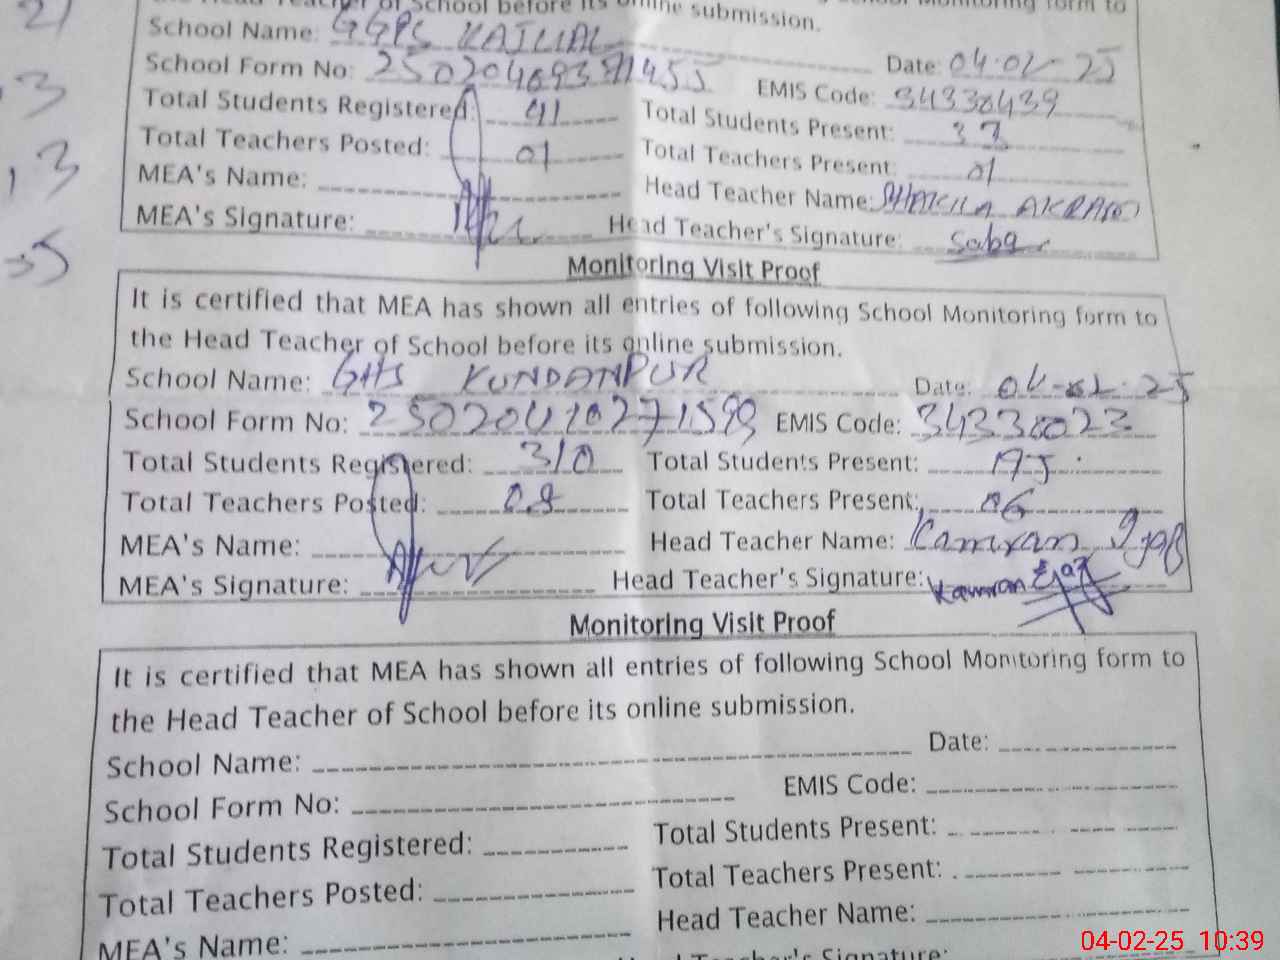 the Head Teacher of School before its online submission. School Monitoring form to
School Name: GGPS KAILIAL Date: 04-02-25
School Form No: EMIS Code: 34330439
Total Students Registered: 41 Total Students Present: 33
Total Teachers Posted: 01 Total Teachers Present: 01
MEA's Name: Head Teacher Name: SHAKILA AKRAM
MEA's Signature: Head Teacher's Signature: Saba
Monitoring Visit Proof
It is certified that MEA has shown all entries of following School Monitoring form to
the Head Teacher of School before its online submission.
School Name: GHS KUNDANPUR Date: 04-02-25
School Form No: EMIS Code: 34330023
Total Students Registered: 310 Total Students Present:
Total Teachers Posted: 08 Total Teachers Present: 06
MEA's Name: Head Teacher Name: Kamran Ijaz
MEA's Signature: Head Teacher's Signature: Kamran Ejaz
Monitoring Visit Proof
It is certified that MEA has shown all entries of following School Monitoring form to
the Head Teacher of School before its online submission.
School Name: Date:
School Form No: EMIS Code:
Total Students Registered: Total Students Present:
Total Teachers Posted: Total Teachers Present:
MEA's Name: Head Teacher Name:
Head Teacher's Signature:
04-02-25 10:39